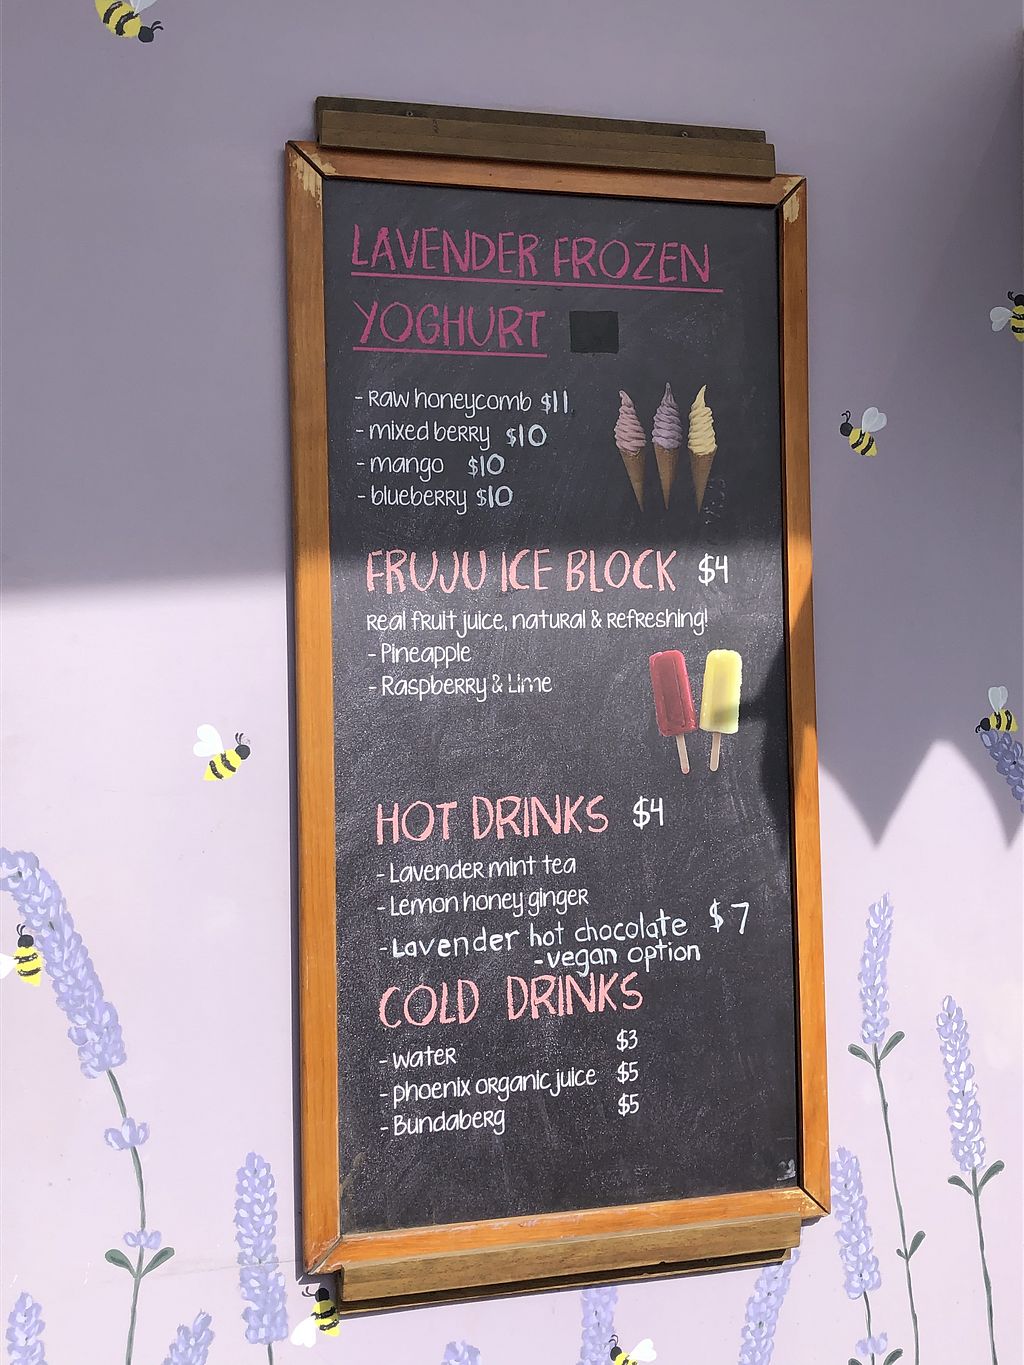 LAVENDER FROZEN
YOGHURT
- raw honeycomb $11
- mixed berry $10
- mango $10
- blueberry $10
FRUJU ICE BLOCK $4
real fruit juice, natural & refreshing!
- Pineapple
- Raspberry & Lime
HOT DRINKS $4
- Lavender mint tea
- Lemon honey ginger
- Lavender hot chocolate $7
- vegan option
COLD DRINKS
- water $3
- phoenix organic juice $5
- Bundaberg $5